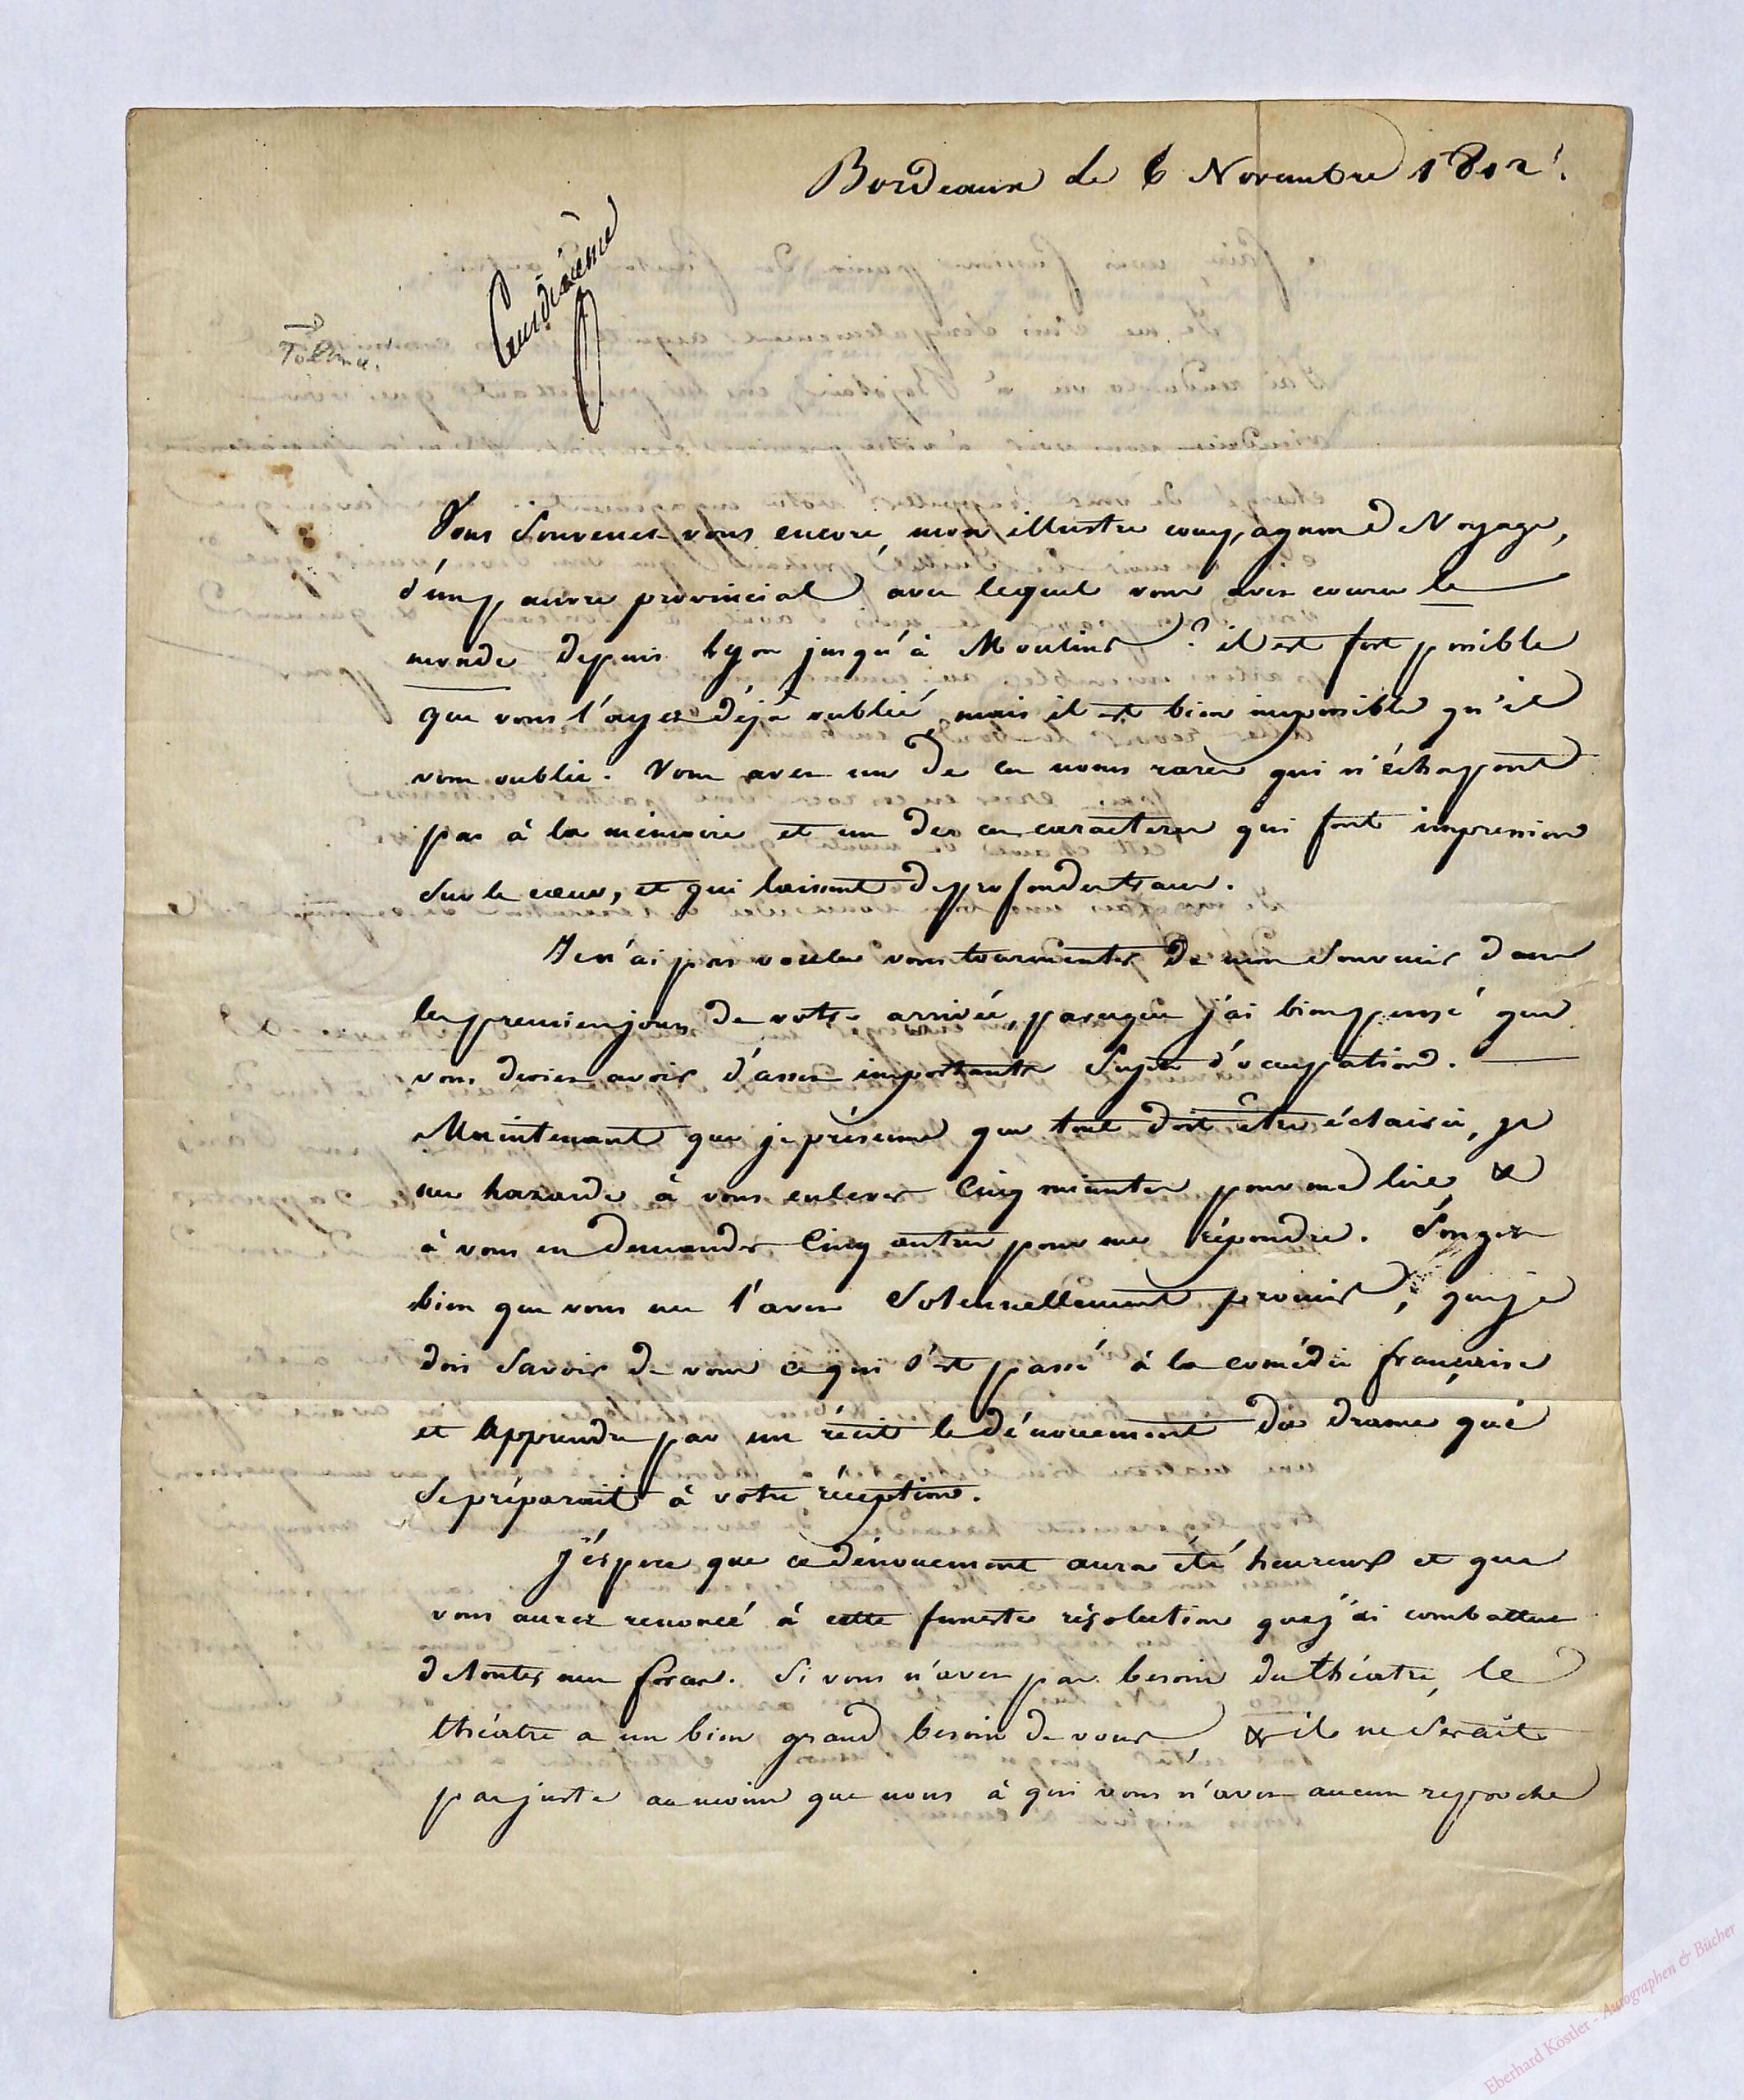 Bordeaux le 6 Novembre 1812.
Talma.
Vous Souvenez-vous encore, mon illustre compagnon de Voyage,
d'un pauvre provincial avec lequel vous avez couru le
monde depuis Lyon jusqu'à Moulins ? il est fort possible
que vous l'ayez déjà oublié, mais il est bien impossible qu'il
vous oublie. Vous avez un de ces noms rares qui n'échapent
pas à la mémoire et un des ces caracteres qui font impression
Sur le cœur, et qui laissent de profondes traces.
Je n'ai pas voulu vous tourmenter de mon Souvenir dans
les premiers jours de votre arrivée, parceque j'ai bien pensé que
vous deviez avoir d'assez importants Sujets d'occupation.
Maintenant que je présume que tout doit être éclairci, je
me hazarde à vous enlever Cinq minutes pour me lire, &
à vous en demander Cinq autres pour me répondre. Songez
bien que vous me l'avez Solennellement promis, que je
dois Savoir de vous ce qui s'est passé à la comédie française
et Apprendre par un récit le dénouement du drame qui
Se préparait à votre réception.
J'éspere que ce dénouement aura été heureux et que
vous aurez renoncé à cette funeste résolution que j'ai combattue
de toutes mes forces. Si vous n'avez pas besoin du théatre, le
théatre a un bien grand besoin de vous, & il ne Serait
pas juste au moins que nous à qui vous n'avez aucun reproche
Eberhard Köstler - Autographen & Bücher